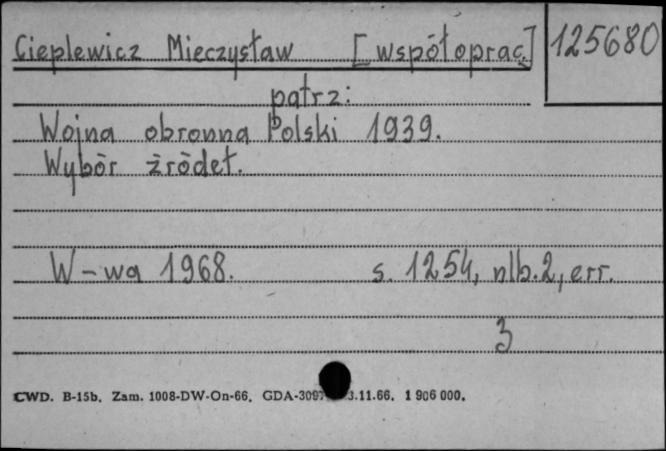 Cieplewicz Mieczysław [współoprac.] 125680
patrz:
Wojna obronna Polski 1939.
Wybór źródeł.
W-wa 1968. s. 1254, nlb. 2, err.
3
CWD. B-15b. Zam. 1008-DW-On-66. GDA-309 3.11.66. 1 906 000.